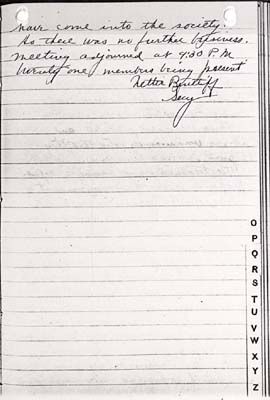 have come into the society.
As there was no further business.
meeting adjourned at 4:30 P.M.
twenty one members being present
Netta
Secy
O
P
Q
R
S
T
U
V
W
X
Y
Z